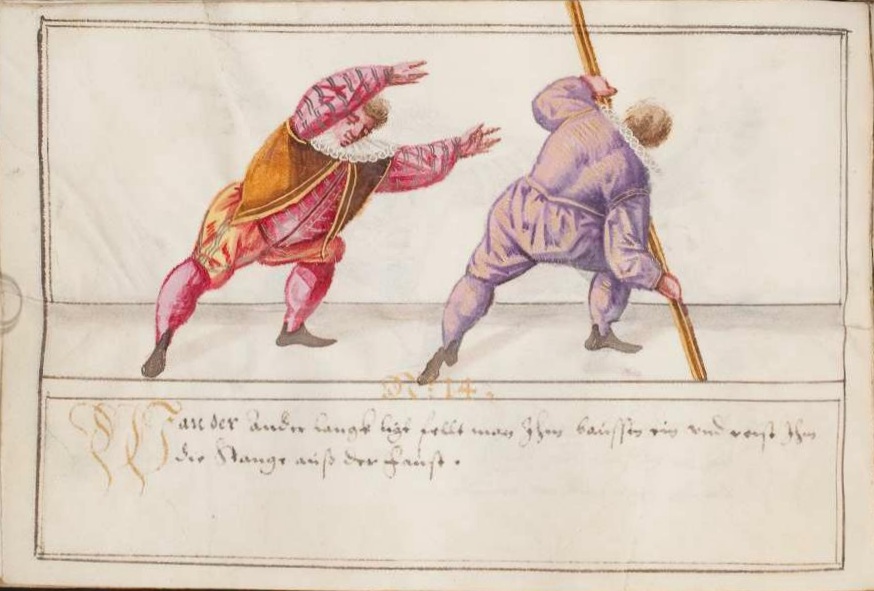 N: 14.
Wan der ander langk ligt fellt man Ihm baussen ein vnd reist Ihm
die Stange auß der Faust.